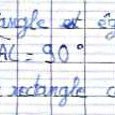 angle est ég
AC = 90°
rectangle